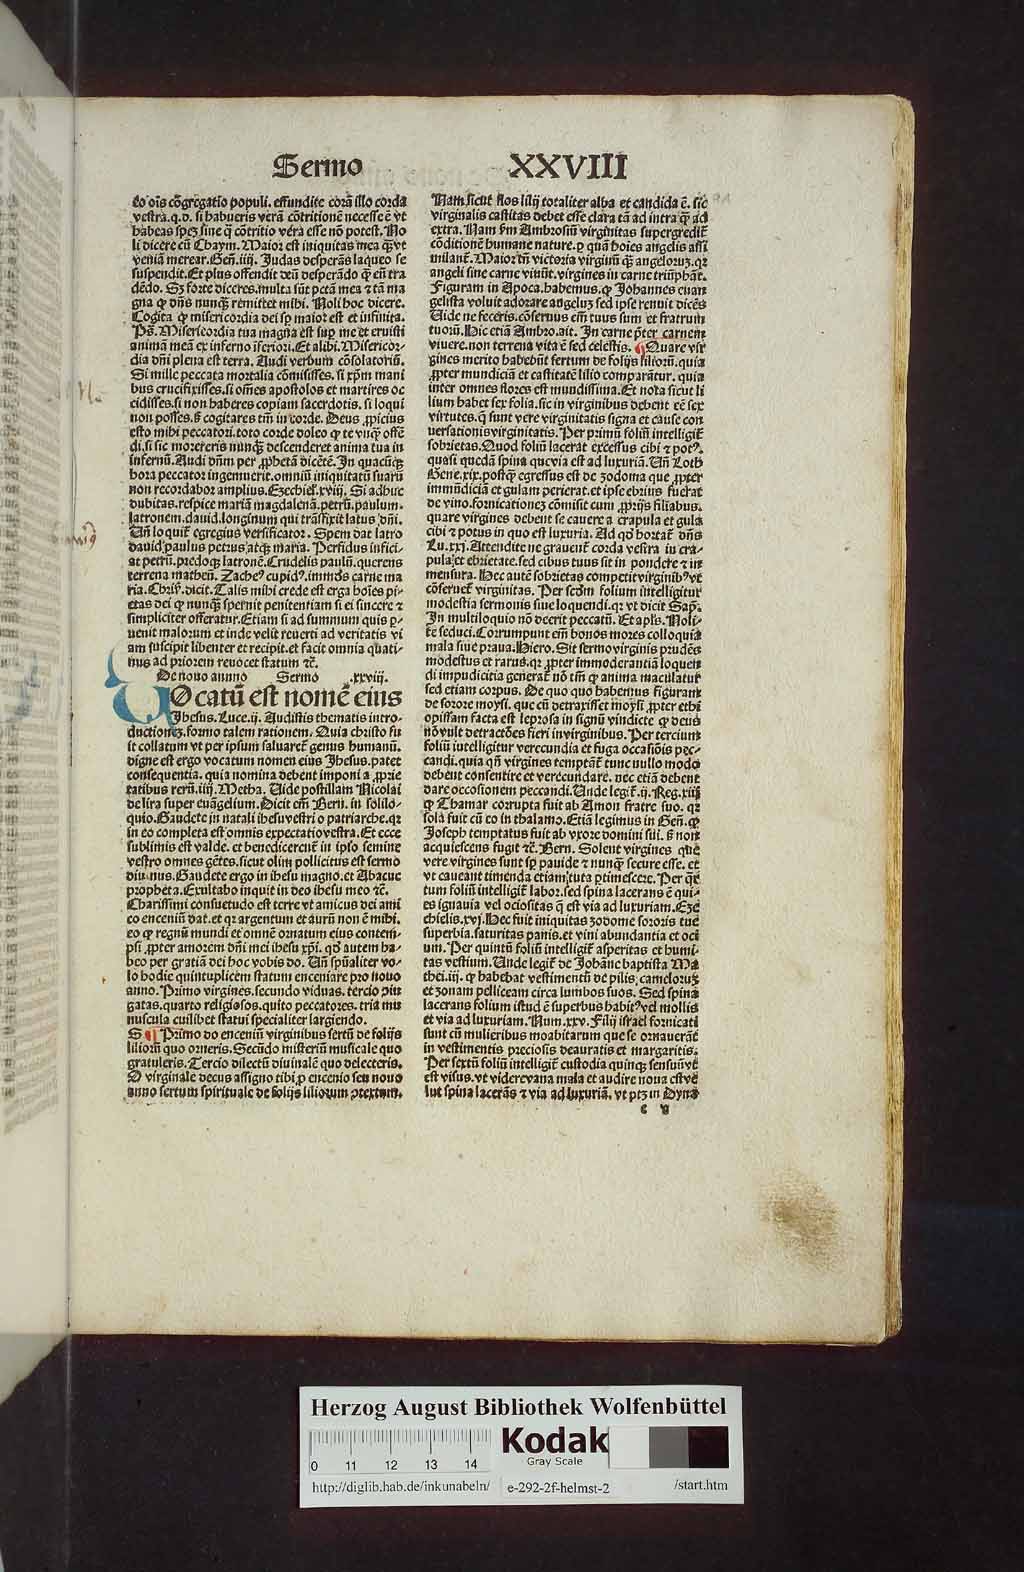 Sermo XXVIII
eo oīs cōgregatio populi. effundite corā illo corda
vestra.q.d. si habueris verā cōtritionē necesse ē vt
habeas spez sine q̄ cōtritio vera esse nō potest. No
li dicere cū Chaym. Maior est iniquitas mea q̄ vt
veniā merear. Geñ.iiij. Judas desperās laqueo se
suspendit. Et plus offendit deū desperādo q̄ eū tra
dēdo. Sz forte diceres.multa sūt pctā mea ⁊ tā ma
gna q̄ dn̄s nunq̄ remittet mihi. Noli hoc dicere.
Cogita q̄ misericordia dei sp maior est et infinita.
Ps̄. Misericordia tua magna est sup me et eruisti
animam meā ex inferno īferiori. Et alibi. Misericor-
dia dn̄i plena est terra. Audi verbum cōsolatoriū.
Si mille peccata mortalia cōmisisses. si xp̄m mani
bus crucifixisses. si om̄es apostolos et martires oc
cidisses.si non haberes copiam sacerdotis. si loqui
non posses. s̄ cogitares tm̄ in corde. Deus ꝓpicius
esto mihi peccatori.toto corde doleo q̄ te vnq̄ offē
di.si sic morereris nunq̄ descenderet anima tua in
infernū. Audi dn̄m per ꝓphetā dicētē. In quacūq̄
hora peccator ingemuerit.omniū iniquitatū suarū
non recordabor amplius. Ezechiel.xviij. Si adhuc
dubitas.respice mariā magdalenā.petrū.paulum.
latronem.dauid.longinum qui trāsfixit latus dn̄i.
Un̄ loquit̄ egregius versificator. Spem dat latro
dauid paulus petrus atq̄ maria. Perfidus infici-
at petrū.predoq̄ latronē. Crudelis paulū.querens
terrena matheū. Zache⁹ cupid⁹.immūs carne ma
ria. Criſ. dicit. Talis mihi crede est erga hoīes pi-
etas dei q̄ nunq̄ spernit penitentiam si ei sincere ⁊
simpliciter offeratur. Etiam si ad summum quis ꝑ-
uenit malorum et inde velit reuerti ad veritatis vi
am suscipit libenter et recipit.et facit omnia quati-
nus ad priorem reuocet statum ⁊c̄.
De nouo annno Sermo .xxviij.
UOcatū est nomē eius
Jhesus. Luce.ij. Audistis thematis intro-
ductionez.formo talem rationem. Quia christo fu
it collatum vt per ipsum saluaret̄ genus humanū.
digne est ergo vocatum nomen eius Jhesus.patet
consequentia. quia nomina debent imponi a ꝓprie
tatibus rerū.iiij. Metha. Uide postillam Nicolai
de lira super euāgelium. Dicit em̄ Bern. in solilo-
quio. Gaudete in natali ihesu vestri o patriarche.qr
in eo completa est omnis expectatio vestra. Et ecce
sublimis est valde. et benedicercēt in ipso semine
vestro omnes gētes.sicut olim pollicitus est sermo
diuinus. Gaudete ergo in ihesu magno.et Abacuc
propheta. Exultabo inquit in deo ihesu meo ⁊c̄.
Charissimi consuetudo est terre vt amicus dei ami
co encenium dat. et qr argentum et aurū non ē mihi.
eo q̄ regnū mundi et omnē ornatum eius contem-
psi ꝓpter amorem dn̄i mei ihesu xp̄i. qd̓ autem ha-
beo per gratiā dei hoc vobis do. Un̄ spūaliter vo-
lo hodie quintuplicem statum enceniare pro nouo
anno. Primo virgines. secundo viduas. tercio ꝯiu
gatas.quarto religiosos.quīto peccatores. tria mu
nuscula cuilibet statui specialiter largiendo.
S ¶ Primo do encenium virginibus sertū de folijs
liliorū quo orneris. Secūdo misteriū musicale quo
gratuleris. Tercio dilectū diuinalē quo delecteris.
O virginale decus assigno tibi ꝓ encenio seu nouo
anno sertum spirituale de folijs liliorum ꝯtextum.
Nam sicut flos lilij totaliter alba et candida ē. sic
virginalis castitas debet esse clara tā ad intra q̄ ad
extra. Nam s̄m Ambrosiū virginitas supergredit̄
cōditionē humane nature. ꝑ quā hoīes angelis assi
milant̄. Maior tn̄ victoria virginū q̄ angeloruz.qr
angeli sine carne viuūt.virgines in carne triūphāt.
Figuram in Apoca.habemus.q̄ Johannes euan
gelista voluit adorare angeluz sed ipse renuit dicēs
Uide ne feceris.cōseruus em̄ tuus sum et fratrum
tuorū. Hic etiā Ambro.ait. In carne p̄ter carnem
viuere.non terrena vita ē sed celestis. ¶ Quare vir
gines merito habebūt sertum de folijs liliorū. quia
ꝓpter mundiciā et castitatē lilio comparātur. quia
inter omnes flores est mundissima. Et nota sicut li
lium habet sex folia.sic in virginibus debent eē sex
virtutes. q̄ sunt vere virginitatis signa et cause con
uersationis virginitatis. Per primū foliū intelligit̄
sobrietas. Quod foliū lacerat excessus cibi ⁊ pot⁹.
quasi quedā spina que via est ad luxuriā. Un̄ Loth
Gene.xix.postq̄ egressus est de zodoma que ꝓpter
immūdiciā et gulam perierat.et ipse ebrius fuerat
de vino.fornicationez cōmisit cum ꝓprijs filiabus.
quare virgines debent se cauere a crapula et gula
cibi ⁊ potus in quo est luxuria. Ad qd̓ hortat̄ dn̄s
Lu.xxj. Attendite ne grauent̄ corda vestra in cra-
pula et ebrietate.sed cibus tuus sit in pondere ⁊ in
mensura. Hec autē sobrietas competit virginib⁹ vt
cōseruet̄ virginitas. Per scd̓m folium intelligitur
modestia sermonis siue loquendi.qr vt dicit Sap̄.
In multiloquio nō deerit peccatū. Et apl̄s. Noli-
te seduci. Corrumpunt em̄ bonos mores colloquia
mala siue praua. Hiero. Sit sermo virginis prudēs
modestus et rarus.qr ꝓpter immoderantiā loquen
di impudicitia generat̄ nō tm̄ q̄ anima maculatur
sed etiam corpus. De quo quo habemus figuram
de sorore moysi. que cū detraxisset moysi ꝓpter ethi
opissam facta est leprosa in signū vindicte q̄ deus
nō vult detractōes fieri in virginibus. Per tercium
foliū intelligitur verecundia et fuga occasiōis pec-
candi.quia qn̄ virgines temptāt̄ tunc nullo modo
debent consentire et verecundare. nec etiā debent
dare occosionem peccandi. Unde legit̄.ij. Reg.xiij
q̄ Thamar corrupta fuit ab Amon fratre suo. qr
sola fuit cū eo in thalamo. Etiā legimus in Geñ. q̄
Joseph temptatus fuit ab vxore domini sui. s̄ non
acquiescens fugit ⁊c̄. Bern. Solent virgines que
vere virgines sunt sp pauide ⁊ nunq̄ secure esse. et
vt caueant timenda etiam tuta ꝑtimescere. Per q̄r
tum foliū intelligit̄ labor.sed spina lacerans ē qui-
es ignauia vel ociositas q̄ est via ad luxuriam. Eze
chielis.xvj. Hec fuit iniquitas zodome sororis tue
superbia.saturitas panis.et vini abundantia et oci
um. Per quintū foliū intelligit̄ asperitas et humi-
tas vestium. Unde legit̄ de Johāne baptista Ma
thei.iij. q̄ habebat vestimentū de pilis camelorum
et zonam pelliceam circa lumbos suos. Sed spina
lacerans folium istud ē superbus habit⁹ vel mollis
et via ad luxuriam. Num.xxv. Filij israel fornicati
sunt cū mulieribus moabitarum que se ornauerāt
in vestimentis preciosis deauratis et margaritis.
Per sextū foliū intelligit̄ custodia quinq̄ sensuū vt
est visus.vt videre vana mala et audire noua est ve
lut spina lacerās ⁊ via ad luxuriā. vt ptz in Dyna
e v
Herzog August Bibliothek Wolfenbüttel
0 11 12 13 14
Kodak
Gray Scale
http://diglib.hab.de/inkunabeln/ e-292-2f-helmst-2 /start.htm